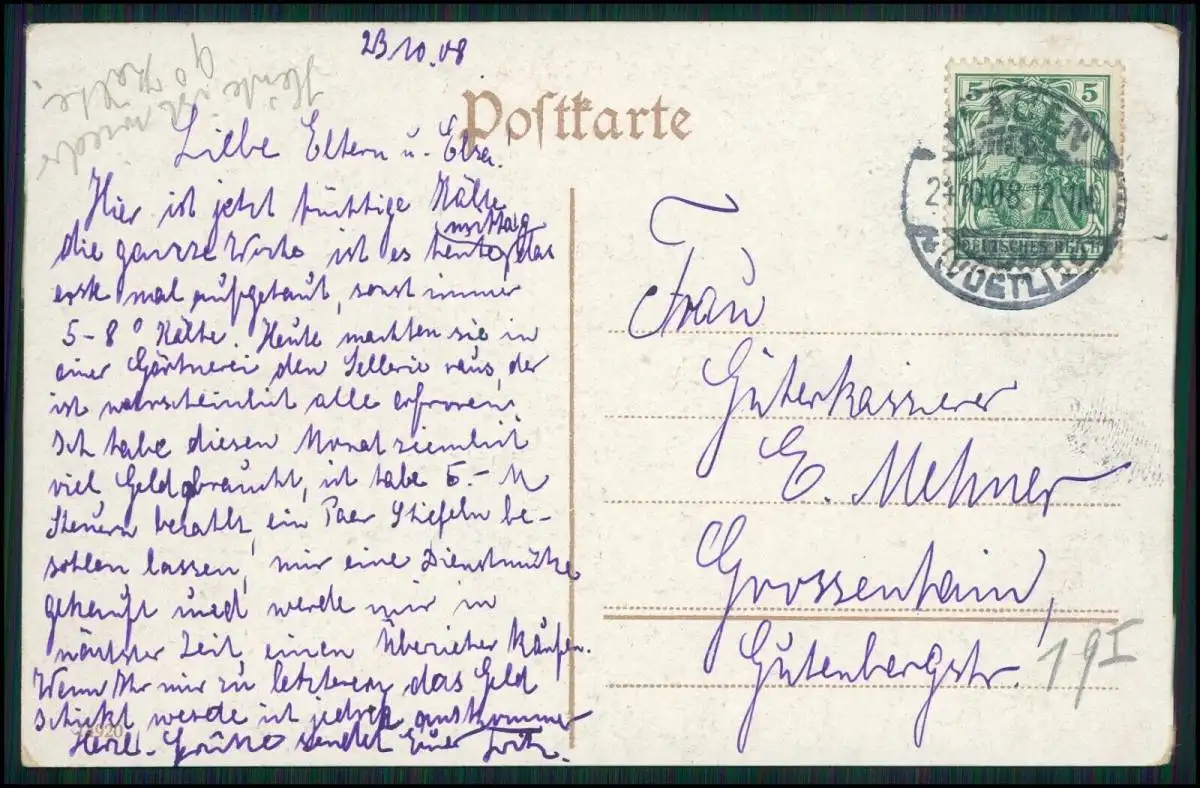 23.10.08
Postkarte
Heute ist wieder
90 Kälte.
Liebe Eltern u. Elsa!
Hier ist jetzt tüchtige Kälte
die ganze Woche ist es heute mittag das
erste mal aufgetaut, sonst immer
5-8° Kälte. Heute machten sie in
einer Gärtnerei den Sellerie raus, der
ist warscheinlich alle erfroren.
Ich habe diesen Monat ziemlich
viel Geld gebraucht, ich habe 5.- M
Steuern bezahlt, ein Paar Stiefeln be-
sohlen lassen, mir eine Dienstmütze
gekauft und werde mir in
nächster Zeit einen Überzieher Kaufen.
Wenn Ihr mir zu letzterem das Geld
schickt werde ich jedoch auskommen
Herzl. Grüsse sendet Euer Fritz.
13920
5 5
DEUTSCHES REICH
24.10.08. 12-1N
(VOGTL)
Frau
Güterkassierer
E. Mehner
Grossenhain,
Gutenbergstr. 19 I